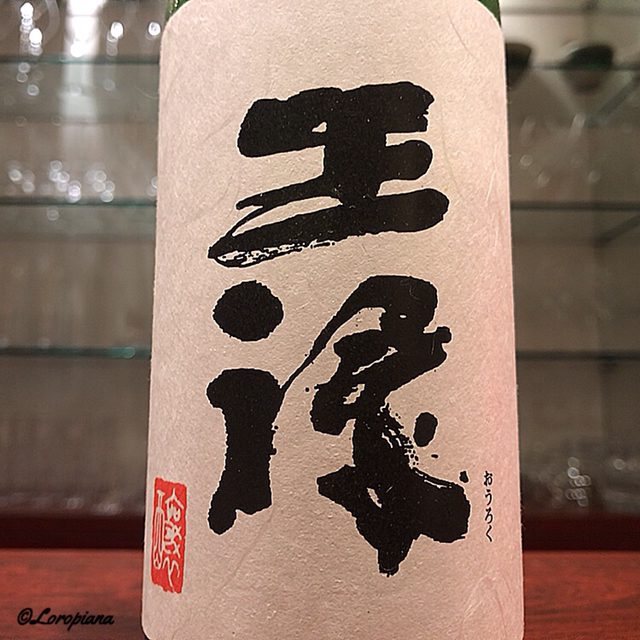 王祿
おうろく
©Loropiana